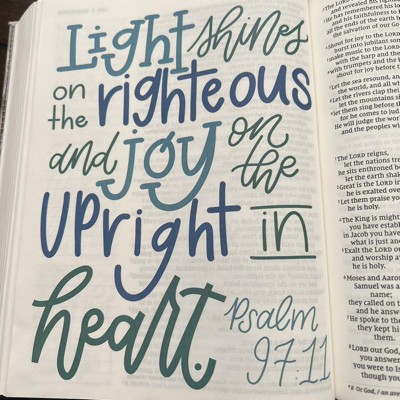 Light shines
on the righteous
and joy on the
upright in
heart.
Psalm
97:11
and revealed his righteou
He has remembered his lo
and his faithfulness to
all the ends of the earth h
the salvation of our Go
Shout for joy to the LORD
burst into jubilant son
make music to the LORD
with trumpets and the b
shout for joy before th
Let the sea resound, an
the world, and all who
Let the rivers clap thei
let the mountains s
let them sing before th
for he comes to jud
He will judge the wor
and the peoples wi
The LORD reigns,
let the nations tre
he sits enthroned be
let the earth shak
Great is the LORD in
he is exalted over
Let them praise you
he is holy.
The King is might
you have establi
in Jacob you hav
what is just and
Exalt the LORD ou
and worship at
he is holy.
Moses and Aaron
Samuel was a
name;
they called on t
and he answ
He spoke to the
they kept his
them.
LORD our God,
you answer
you were to Is
though you
8 Or God, / an ave